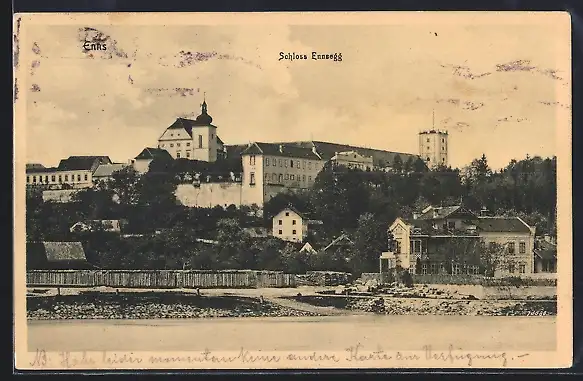 Enns
Schloss Ennsegg
NB. Habe leider momentan keine andere Karte zur Verfügung. —